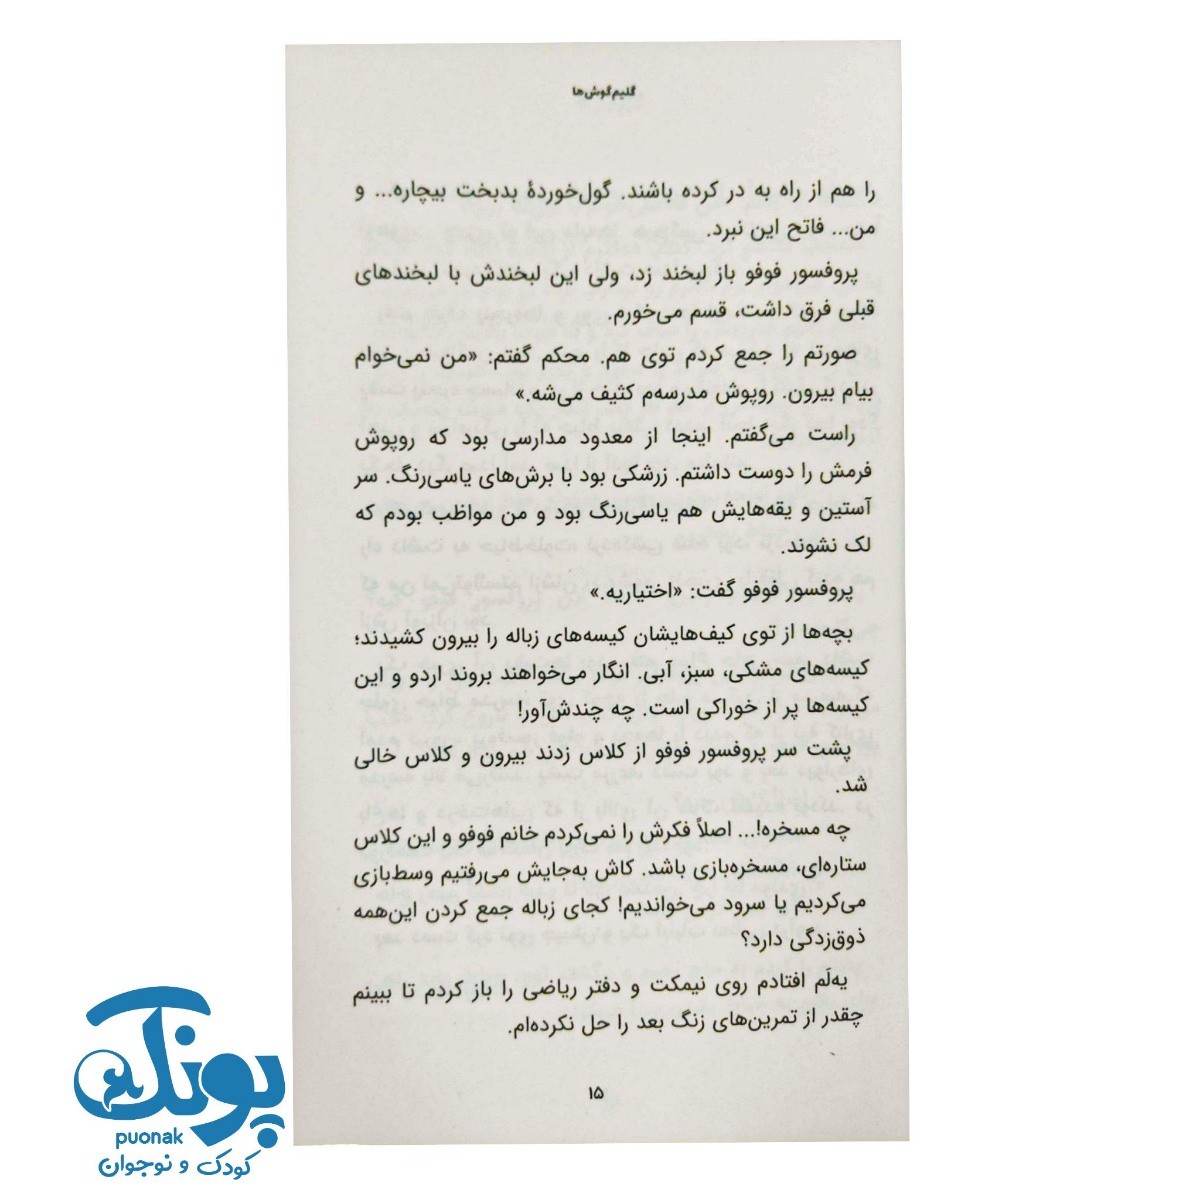 گلیم‌گوش‌ها
را هم از راه به در کرده باشند. گول‌خوردهٔ بدبخت بیچاره... و
من... فاتح این نبرد.
پروفسور فوفو باز لبخند زد، ولی این لبخندش با لبخندهای
قبلی فرق داشت، قسم می‌خورم.
صورتم را جمع کردم توی هم. محکم گفتم: «من نمی‌خوام
بیام بیرون. روپوش مدرسه‌م کثیف می‌شه.»
راست می‌گفتم. اینجا از معدود مدارسی بود که روپوش
فرمش را دوست داشتم. زرشکی بود با برش‌های یاسی‌رنگ. سر
آستین و یقه‌هایش هم یاسی‌رنگ بود و من مواظب بودم که
لک نشوند.
پروفسور فوفو گفت: «اختیاریه.»
بچه‌ها از توی کیف‌هایشان کیسه‌های زباله را بیرون کشیدند؛
کیسه‌های مشکی، سبز، آبی. انگار می‌خواهند بروند اردو و این
کیسه‌ها پر از خوراکی است. چه چندش‌آور!
پشت سر پروفسور فوفو از کلاس زدند بیرون و کلاس خالی
شد.
چه مسخره!... اصلاً فکرش را نمی‌کردم خانم فوفو و این کلاس
ستاره‌ای، مسخره‌بازی باشد. کاش به‌جایش می‌رفتیم وسط‌بازی
می‌کردیم یا سرود می‌خواندیم! کجای زباله جمع کردن این‌همه
ذوق‌زدگی دارد؟
یه‌لَم افتادم روی نیمکت و دفتر ریاضی را باز کردم تا ببینم
چقدر از تمرین‌های زنگ بعد را حل نکرده‌ام.
۱۵
پونک
puonak
کودک و نوجوان